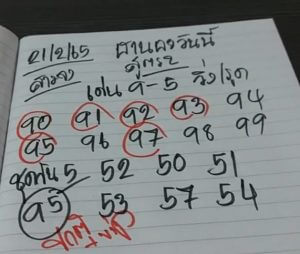 21/2/65 ผ่านลาววันนี้
ลาว สูตร
เด่น 9-5 วิ่ง/รูด
90 91 92 93 94
95 96 97 98 99
ชุดฟัน 5 52 50 51
95 53 57 54